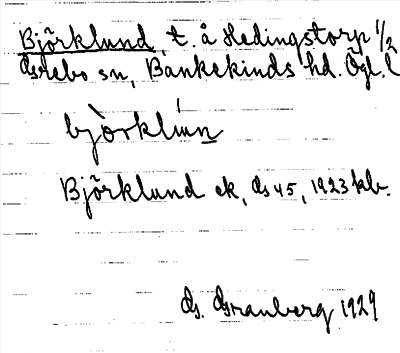 Björklund, t. å Hedingstorp 1/2
Grebo sn, Bankekinds hd. Ögl. l
bjò̀rklún
Björklund ek, Gs 45, 1923 kb.
G. Granberg 1929